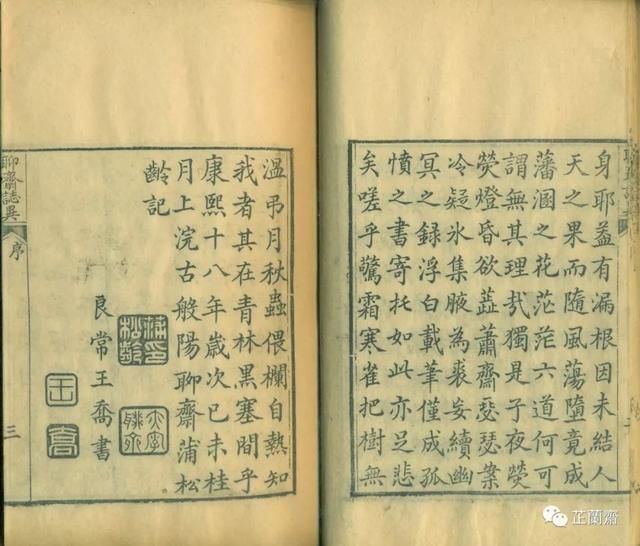 身耶葢有漏根因未結人
天之果而隨風蕩墮竟成
藩溷之花茫茫六道何可
謂無其理哉獨是子夜熒
熒燈昏欲蕋蕭齋瑟瑟案
冷疑氷集腋為裘妄續幽
冥之錄浮白載筆僅成孤
憤之書寄托如此亦足悲
矣嗟乎驚霜寒雀抱樹無
溫弔月秋蟲偎欄自熱知
我者其在青林黑塞間乎
康熙十八年歲次己未桂
月上浣古般陽聊齋蒲松
齡記
良常王喬書
王
喬
聊齋誌異
序
三
芷蘭齋